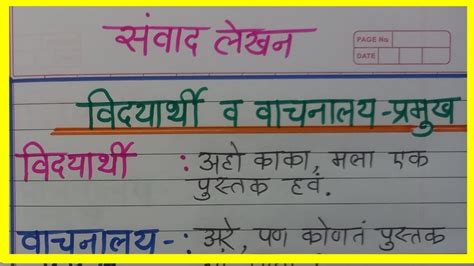 संवाद लेखन
PAGE No
DATE
विदयार्थी व वाचनालय-प्रमुख
विदयार्थी : अहो काका, मला एक
पुस्तक हवं.
वाचनालय-: अरे, पण कोणतं पुस्तक